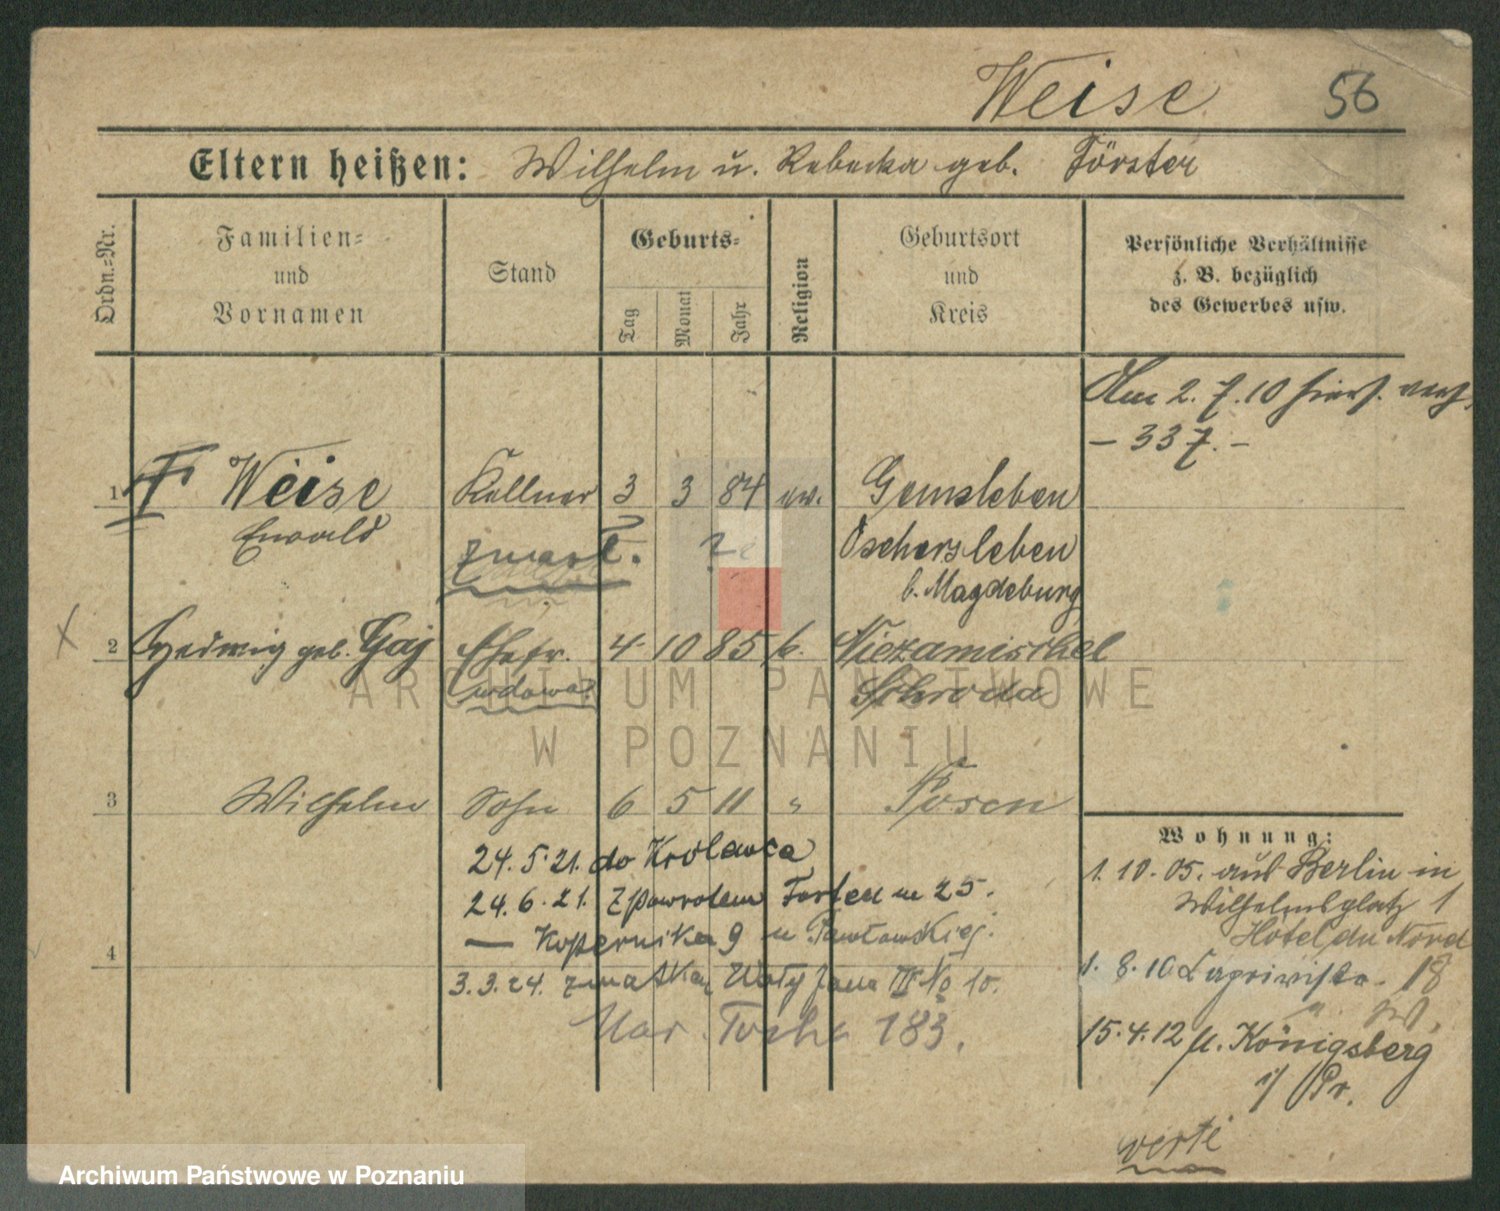 Weise 56
Eltern heißen: Wilhelm u. Rebecka geb. Förster
Ordn.-Nr.
Familien-
und
Vornamen
Stand
Geburts-
Tag
Monat
Jahr
Religion
Geburtsort
und
Kreis
Persönliche Verhältnisse
z. B. bezüglich
des Gewerbes usw.
Am 2. 7. 10
— 337. —
1 Weise Kellner 3 3 84 ev.
Ewald zmarł. ? Oschersleben
b. Magdeburg
2 Hedwig geb. Gaj Ehefr. 4 10 85 k. Niezamischel
wdowa? Schroda
3 Wilhelm Sohn 6 5 11 " Posen
24. 5. 21. do
24. 6. 21. Zpowrotem 25.
4 — Kopernika 9 u Pawłowskiej.
3. 3. 24. Jana III No 10.
183.
Wohnung:
1. 10. 05. aus Berlin in
Wilhelmsplatz 1
Hotel du Nord
1. 8. 10 18
15. 4. 12 Königsberg
i/ Pr.
verte
ARCHIWUM PAŃSTWOWE
W POZNANIU
Archiwum Państwowe w Poznaniu